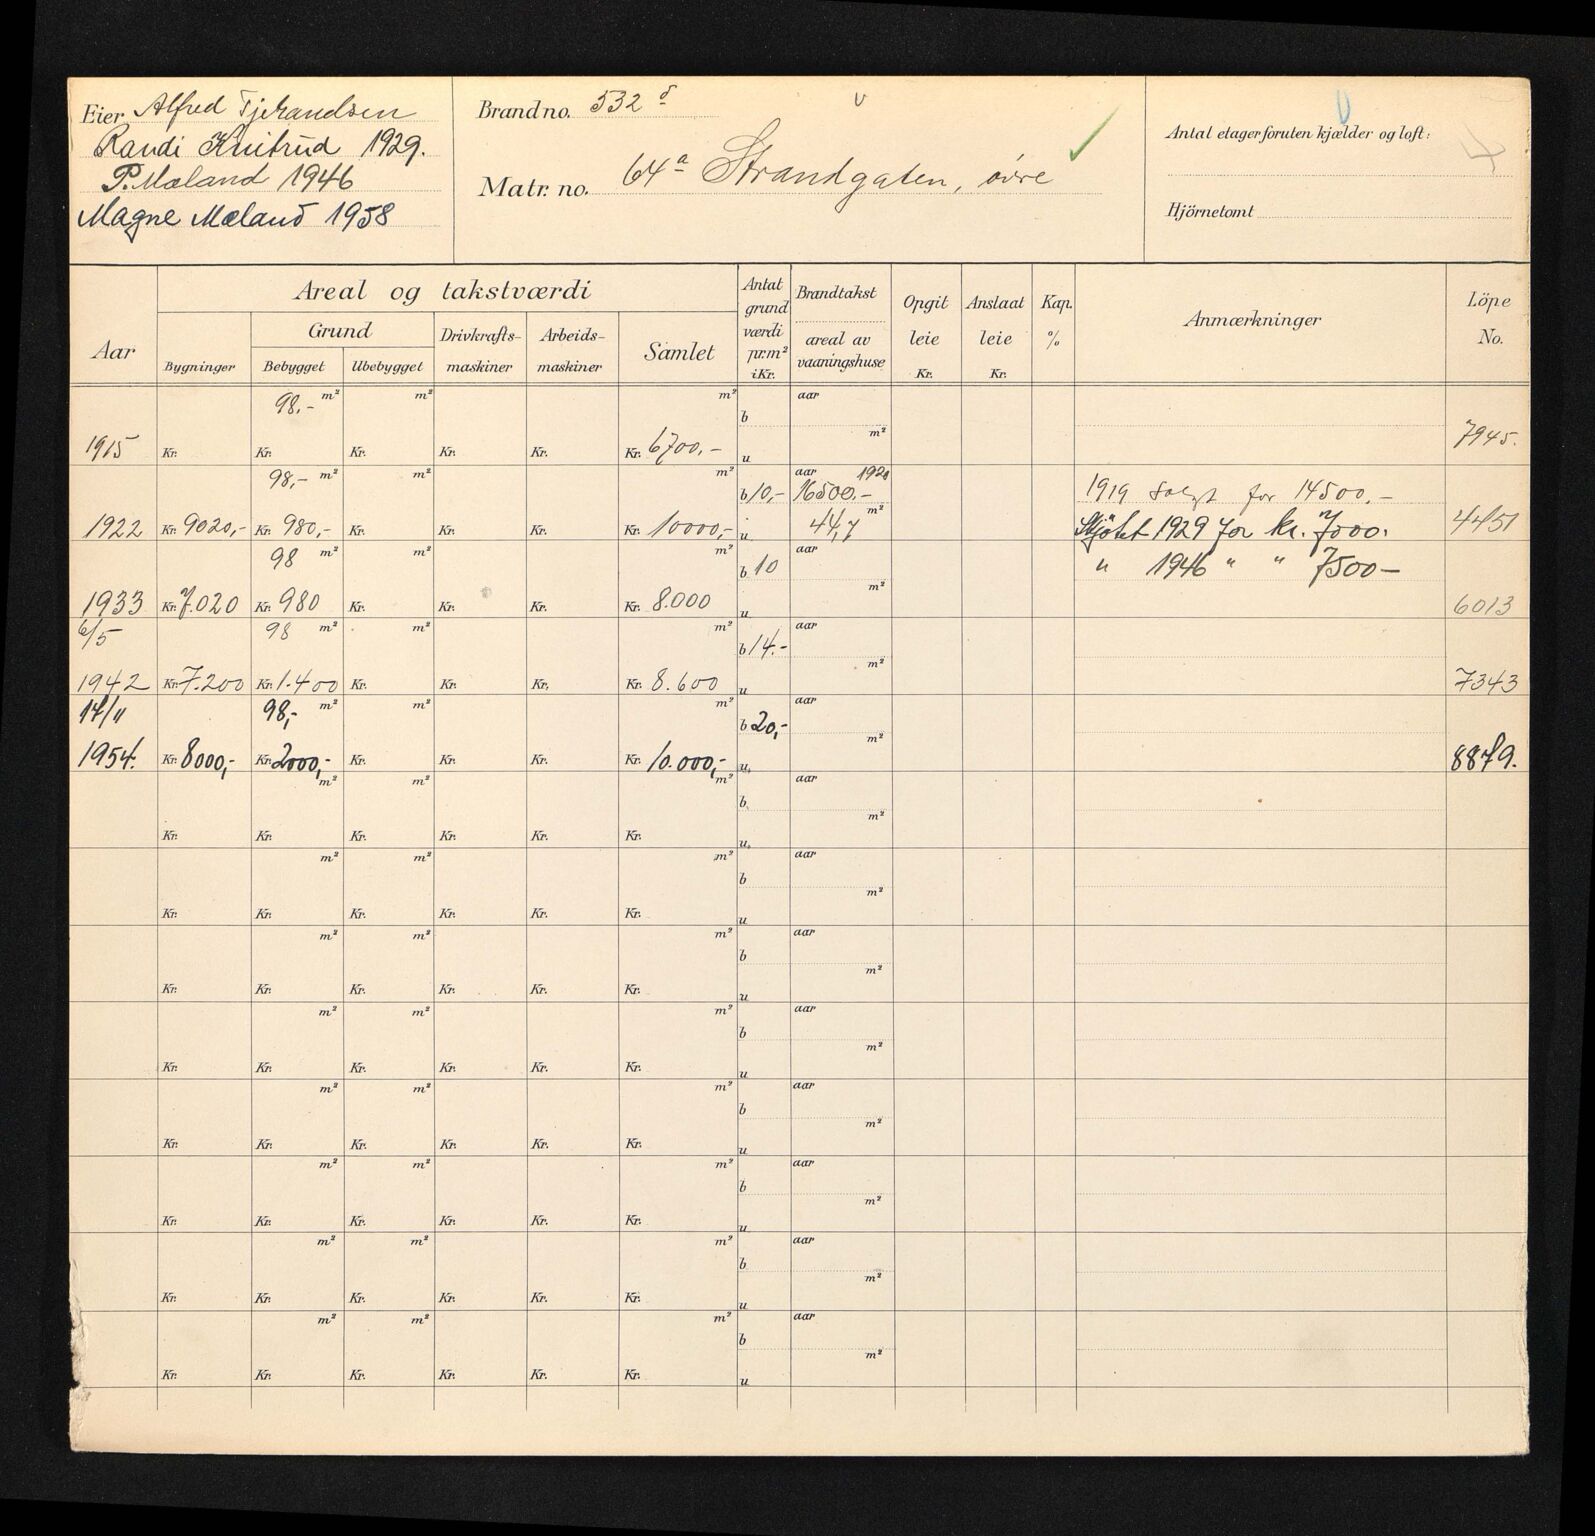 Eier Alfred Tjerandsen
Randi Knitrud 1929.
P. Mæland 1946
Magne Mæland 1958
Brandno. 532 d
Matr. no. 64a Strandgaten, övre
Antal etager foruten kjælder og loft:
Hjörnetomt
Aar
Areal og takstværdi
Grund
Bygninger Bebygget Ubebygget
Drivkrafts-maskiner
Arbeids-maskiner
Samlet
Antat grund værdi pr. m² i Kr.
Brandtakst
areal av vaaningshuse
Opgit leie Kr.
Anslaat leie Kr.
Kap. %
Anmærkninger
Löpe No.
98,- m² m² m² b aar
1915 Kr. Kr. Kr. Kr. Kr. Kr. 6700,- u m² 7945.
98,- m² m² m² b 10,- aar 1920 16500,- 1919 solgt for 14500,-
1922 Kr. 9020,- Kr. 980,- Kr. Kr. Kr. Kr. 10000,- u 44,7 m² Skjötet 1929 for kr. 7000. 4451
98 m² m² m² b 10 aar " 1946 " " 7500-
1933 Kr. 7.020 Kr. 980 Kr. Kr. Kr. Kr. 8.000 u m² 6013
6/5 98 m² m² m² b 14.- aar
1942 Kr. 7.200 Kr. 1.400 Kr. Kr. Kr. Kr. 8.600 u m² 7343
17/11 98,- m² m² m² b 20,- aar
1954. Kr. 8000,- Kr. 2000,- Kr. Kr. Kr. Kr. 10.000,- u m² 8879.
m² m² m² b aar
Kr. Kr. Kr. Kr. Kr. Kr. u m²
m² m² m² b aar
Kr. Kr. Kr. Kr. Kr. Kr. u m²
m² m² m² b aar
Kr. Kr. Kr. Kr. Kr. Kr. u m²
m² m² m² b aar
Kr. Kr. Kr. Kr. Kr. Kr. u m²
m² m² m² b aar
Kr. Kr. Kr. Kr. Kr. Kr. u m²
m² m² m² b aar
Kr. Kr. Kr. Kr. Kr. Kr. u m²
m² m² m² b aar
Kr. Kr. Kr. Kr. Kr. Kr. u m²
m² m² m² b aar
Kr. Kr. Kr. Kr. Kr. Kr. u m²